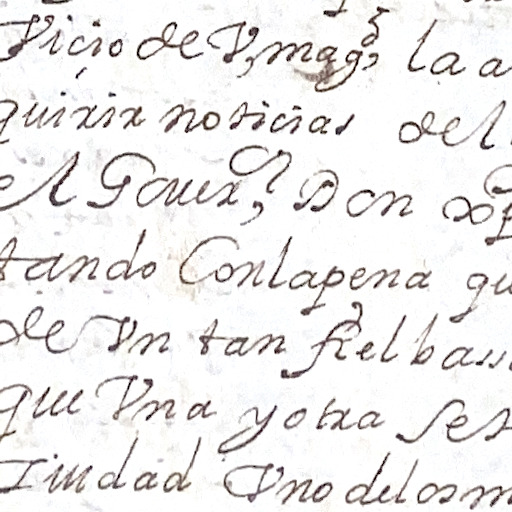 Vicio de V, mag.s la a
quirir noticias del
el Gouer,l Don xp
tando Con la pena qu
de Vn tan fiel bass
que Vna y otra Se
Ciudad Vno de los m